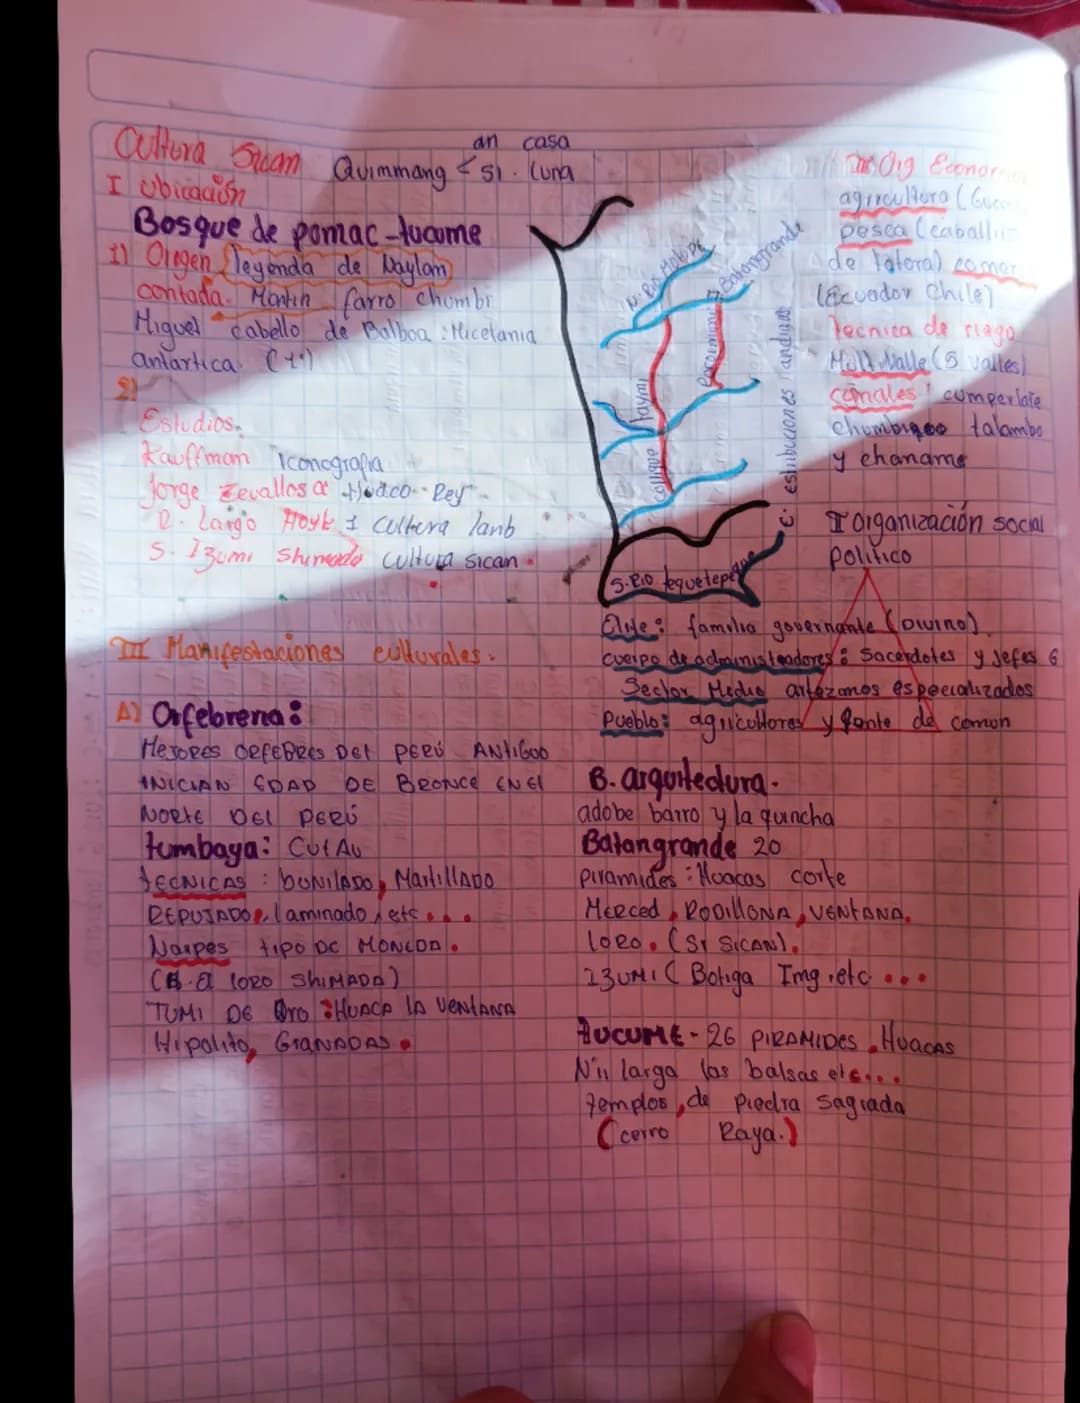 Cultura Sican
Quimmang < an casa
si . luna
I Ubicación
Bosque de pomac - tucume
1) Origen leyenda de Naylam
contada. Martin farro chumbi
Miguel cabello de Balboa : Micelania
antartica.
Estudios.
Kauffmam Iconografia
Jorge Zevallos Huaco - Rey
R. Largo Hoyle 1 Cultura lamb
S. Izumi Shimada cultura sican
III Manifestaciones culturales.
A) Orfebreria:
MEJORES ORFEBRES DEL PERÚ ANTIGUO
INICIAN EDAD DE BRONCE EN El
NORTE DEL PERÚ
tumbaya: Cu+Au
TECNICAS : bUNILADO, MartillADO
REPUJADO, laminado, etc ...
Naipes tipo DE MONEDA.
(H. El loro SHIMADA)
TUMI DE Oro : HUACA LA VENTANA
Hipolito, GRANADAS.
Batangrande
Racarumi
taymi
collique
C. estribaciones andinas
S. Rio Jequetepeque
Org Econom
agricultura (Guan
pesca (caballi
de totora) comer
(Ecuador Chile)
Tecnica de riego
Multi Valle (5 valles)
canales : cumperlate
talambo
y chaname
I organización social
político
Elite : familia governante (Divino)
cuerpo de administradores : Sacerdotes y Jefes G
Sector Medio artezanos especializados
Pueblo : agricultores y gente de comun
B. arquitectura.
adobe barro y la quincha
Batangrande 20
piramides : Huacas corte
MERCED, RODILLONA, VENTANA,
loro. (SI SICAN).
IZUMI ( Botija Img , etc ...
TUCUME - 26 PIRAMIDES, HUACAS
larga las balsas etc...
Templos, de piedra sagrada
(cerro Raya.)